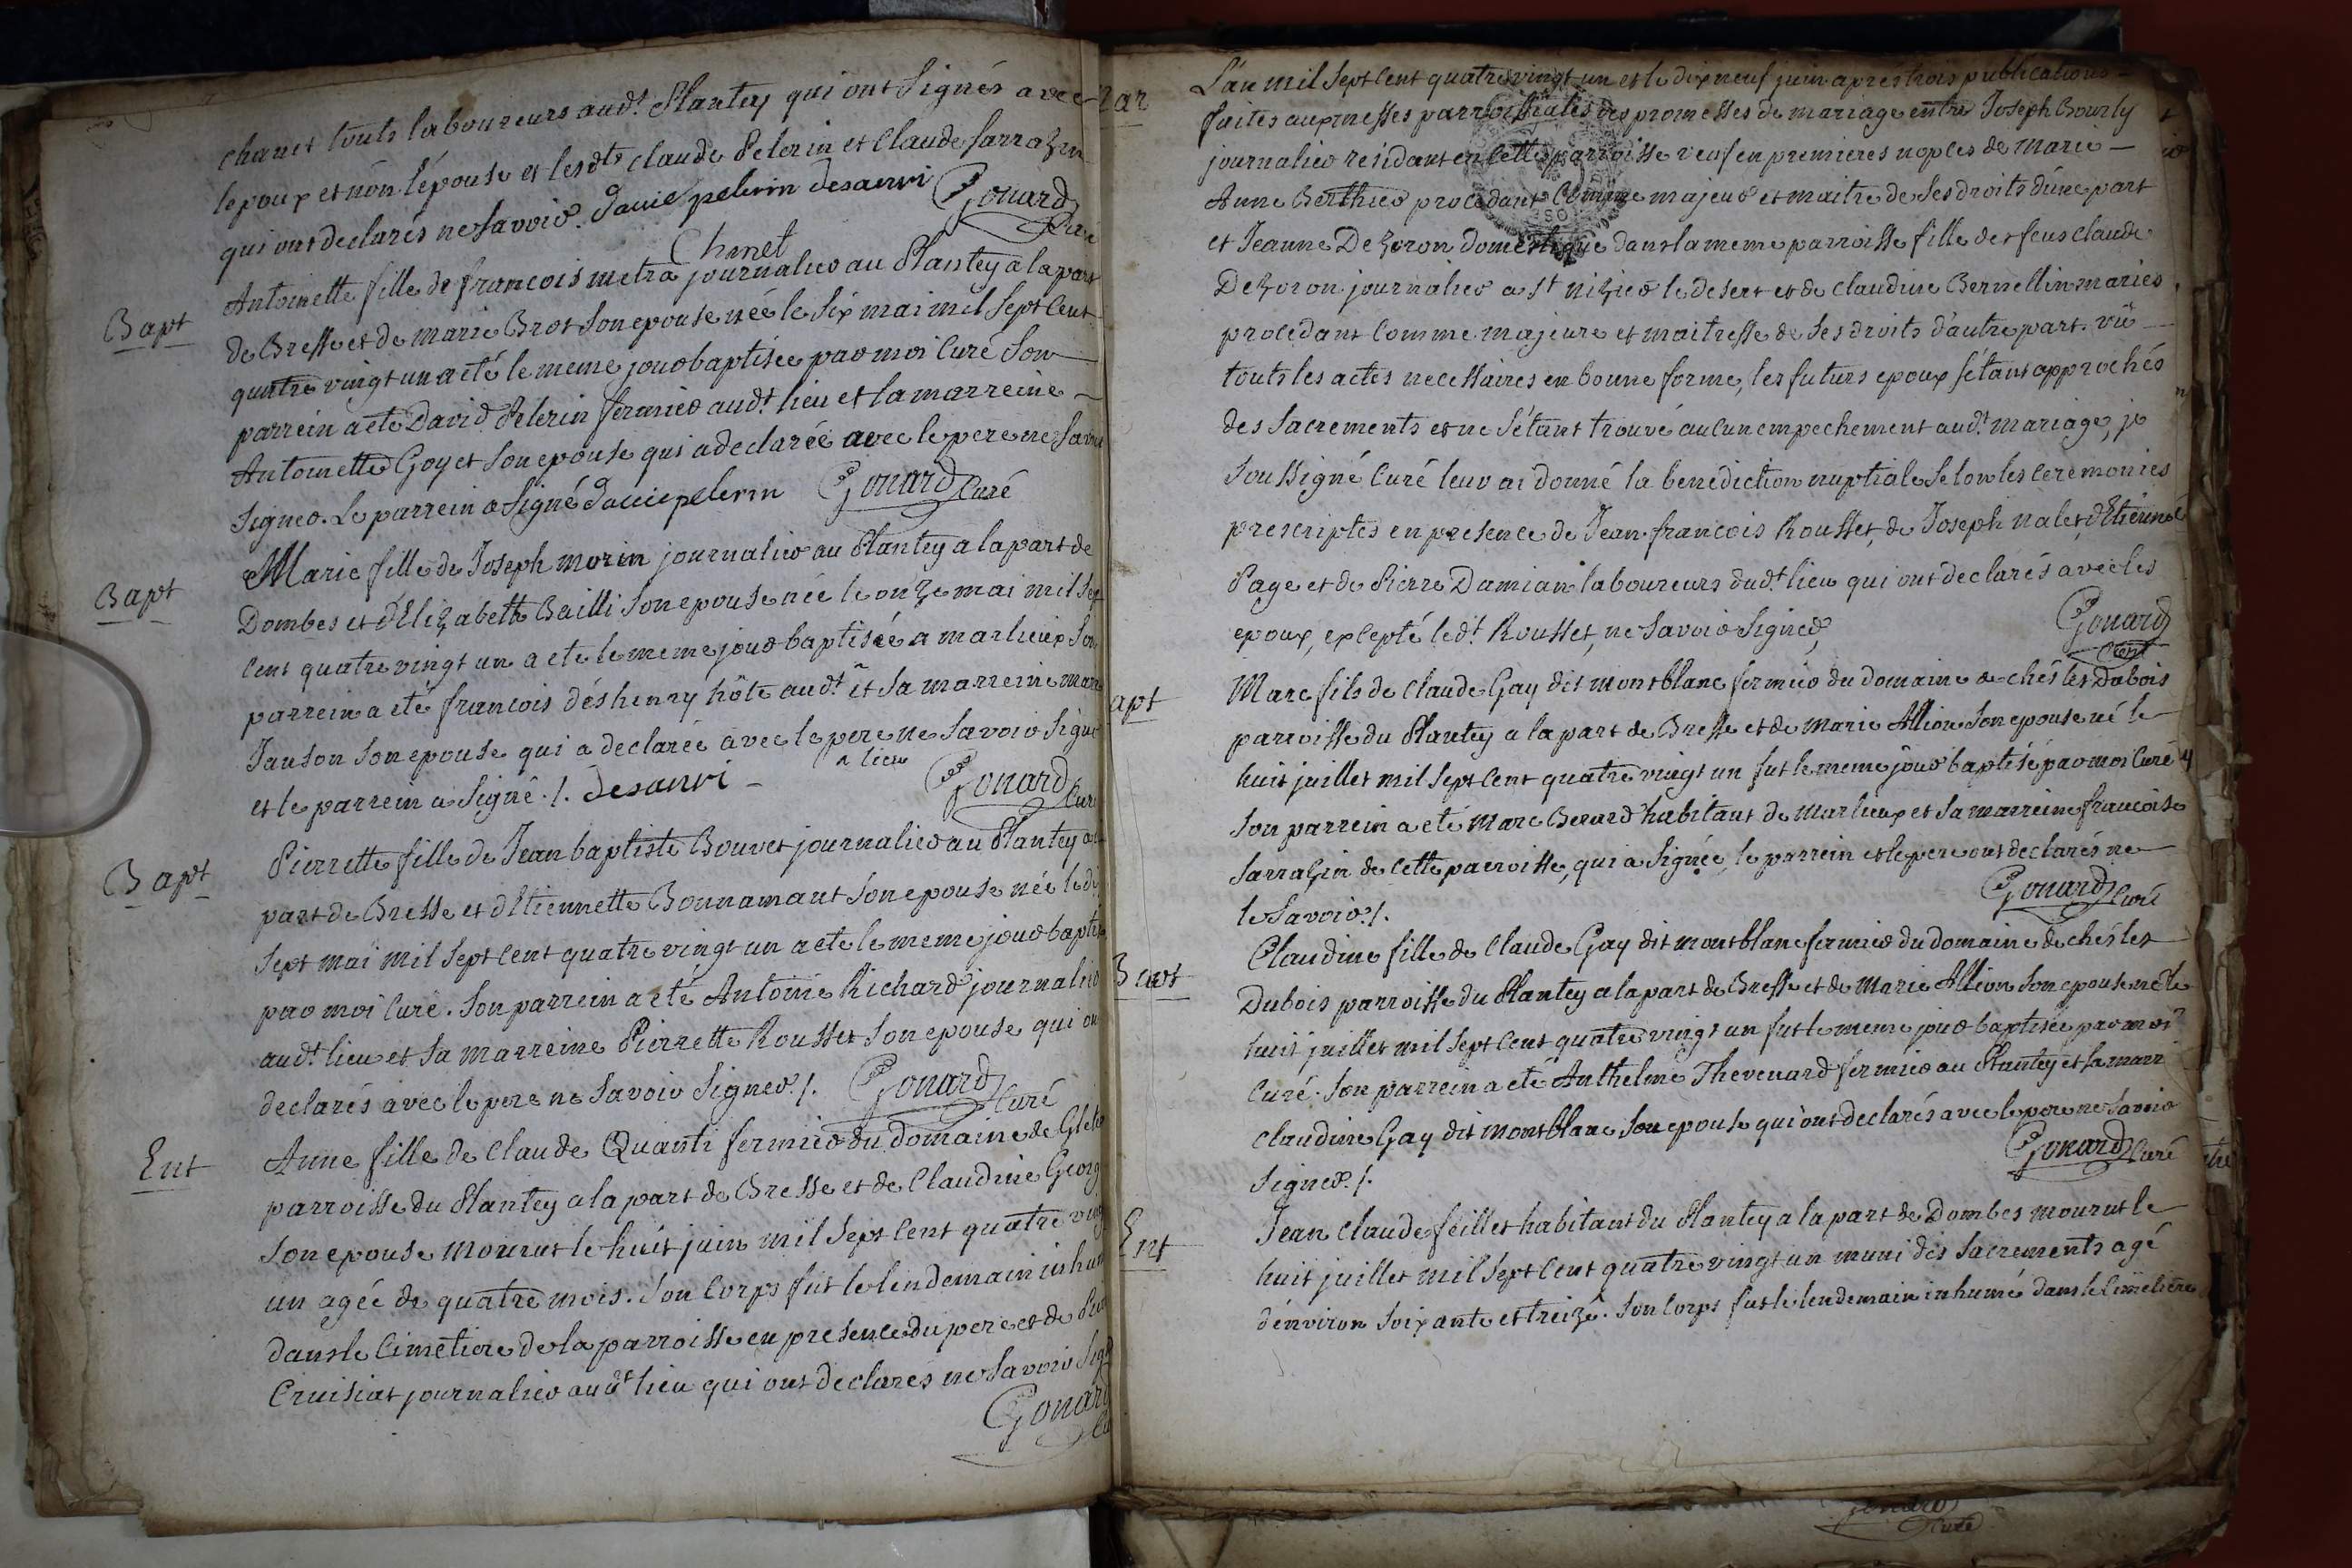 chanet touts laboureurs audt. Plantey qui ont signés avec
lepoux et non l'épouse et lesdts claude Pelerin et Claude Sarrazin
qui ont declarés ne savoir. davie pelerin desanri Gonard Curé
Chanet
Bapt
Antoinette fille de francois metra journalier au Plantey a la part
de Bresse et de marie Brot son epouse née le six mai mil sept cent
quatre vingt un a eté le meme jour baptisée par moi Curé son
parrein a eté David Pelerin fermier audt. lieu et la marreine
Antoinette Goyet son epouse qui a declarée avec le pere ne savoir
signer. Le parrein a signé davie pelerin Gonard Curé
Bapt
Marie fille de Joseph morin journalier au Plantey a la part de
Dombes et d'Elizabeth Bailli son epouse née le onze mai mil sept
cent quatre vingt un a eté le meme jour baptisée a marlieux son
parrein a eté francois déshenry hôte audt. ^ et sa marreine marie
Janson son epouse qui a declarée avec le pere ne savoir signer
^ lieu
et le parrein a signé ./. desanri - Gonard Curé
Bapt
Pierrette fille de Jean baptiste Bouvet journalier au Plantey a la
part de Bresse et d'Etiennette Bonnamant son epouse née le dix
sept mai mil sept cent quatre vingt un a eté le meme jour baptisée
par moi Curé. son parrein a eté Antoine Richard journalier
audt lieu et sa marreine Pierrette Rousset son epouse qui ont
declarés avec le pere ne savoir signer ./. Gonard Curé
Ent
Anne fille de Claude Quanti fermier du domaine de
parroisse du Plantey a la part de Bresse et de Claudine
son epouse mourut le huit juin mil sept cent quatre vingt
un agée de quatre mois. son corps fut le lendemain inhumé
dans le cimetiere de la parroisse en presence du pere et de
Cruisiat journalier audt lieu qui ont declarés ne savoir signer
Gonard
ar
L'an mil sept cent quatre vingt un et le dix neuf juin aprés trois publications
faites aux messes parroissiales des promesses de mariage entre Joseph Bourly
journalier residant en cette parroisse veuf en premieres noples de Marie
Anne Berthier procedant comme majeur et maitre de ses droits d'une part
et Jeanne Dezoron domestique dans la meme parroisse fille des feus claude
Dezoron journalier a st nizier le desert et de claudine Bernellin mariés
procedant comme majeure et maitresse de ses droits d'autre part. vû
touts les actes necessaires en bonne forme, les futurs epoux s'étant approchés
des sacrements et ne s'étant trouvé aucun empechement audt. mariage, je
soussigné Curé leur ai donné la benediction nuptiale selon les ceremonies
prescriptes en presence de Jean francois Rousset, de Joseph nalet, d'Etienne
Page et de Pierre Damian laboureurs dudt. lieu qui ont declarés avec les
epoux, excepté ledt. Rousset, ne savoir signer, Gonard
Curé
apt
Marc fils de Claude Gay dit montblanc fermier du domaine de chés les Dubois
parroisse du Plantey a la part de Bresse et de marie Allion son epouse né le
huit juillet mil sept cent quatre vingt un fut le meme jour baptisé par moi Curé
son parrein a eté marc Berard habitant de marlieux et sa marreine francoise
sarrazin de cette parroisse, qui a signée, le parrein et le pere ont declarés ne
le savoir ./. Gonard Curé
Bapt
Claudine fille de Claude Gay dit montblanc fermier du domaine de chés les
Dubois parroisse du Plantey a la part de Bresse et de marie Allion son epouse née le
huit juillet mil sept cent quatre vingt un fut le meme jour baptisée par moi
Curé. son parrein a eté Anthelme Thevenard fermier au Plantey et sa marr
Claudine Gay dit montblanc son epouse qui ont declarés avec le pere ne savoir
signer ./. Gonard Curé
Ent
Jean claude feillet habitant du Plantey a la part de Dombes mourut le
huit juillet mil sept cent quatre vingt un muni des sacrements agé
d'environ soixante et treize. son corps fut le lendemain inhumé dans le cimetiere
Gonard
Curé